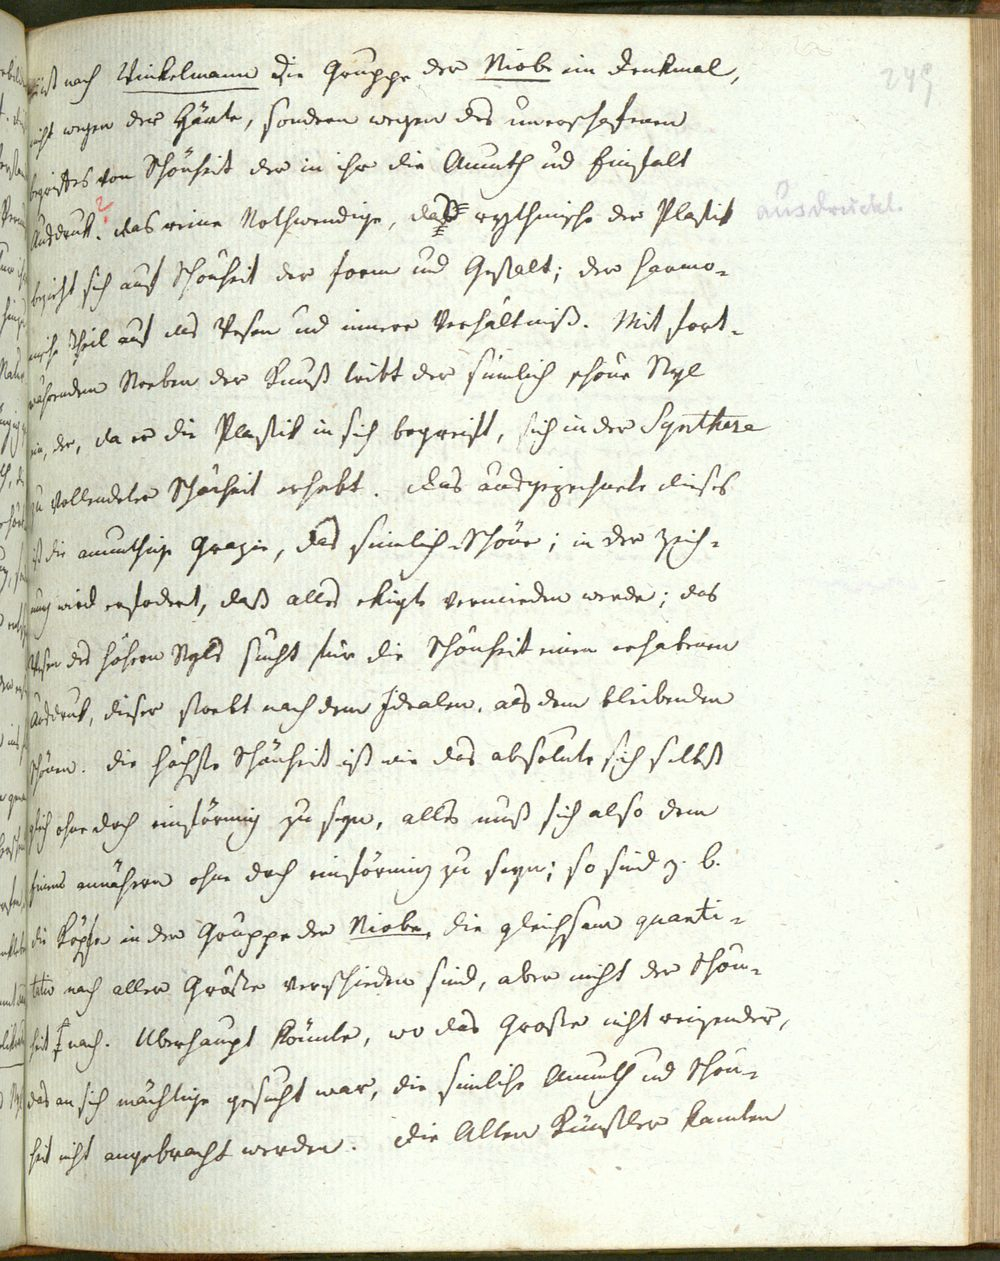 ist nach Winkelmann die Gruppe der Niobe ein Denkmal,
nicht wegen der Härte, sondern wegen des unerschafenen
begriffes von Schönheit der in ihr die Anmuth ud Einfalt
Ausdruk. ? das reine Nothwendige, das rythmische der Plastik
bezieht sich auf Schönheit der form und Gestalt; der harmo-
nische Theil auf das Wesen ud innere Verhältniß. Mit fort-
währendem Streben der Kunst tribt der sinnlich schöne Styl
ein, der, da er die Plastik in sich begreift, sich in der Synthese
zu vollendeter Schönheit erhebt. das ausgezeichnete dieses
ist die anmuthige Grazie, das sinnlich-Schöne; in der Zeich-
nung wird erfodert, daß alles ekigte vermieden werde; das
Wesen des höhern Styls sucht für die Schönheit einen erhabenen
Ausdruk, dieser strebt nach dem Idealen, als dem bleibenden
Schönen. die höchste Schönheit ist wie das absolute sich selbst
gleich ohne doch einförmig zu seyn, alles muß sich also dem
Einens annähern ohne doch einförmig zu seyn; so sind z. b.
die Köpfe in der Gruppe der Niobe, die gleichsam quanti-
tativ nach aller Größe verschieden sind, aber nicht der Schön-
heit nach. Uberhaupt könnte, wo das Große nicht reizender,
das an sich mächtige gesucht war, die sinnliche Anmuth ud Schön-
heit nicht angebracht werden. die Alten Künstler kannten
249
ausdruckt.